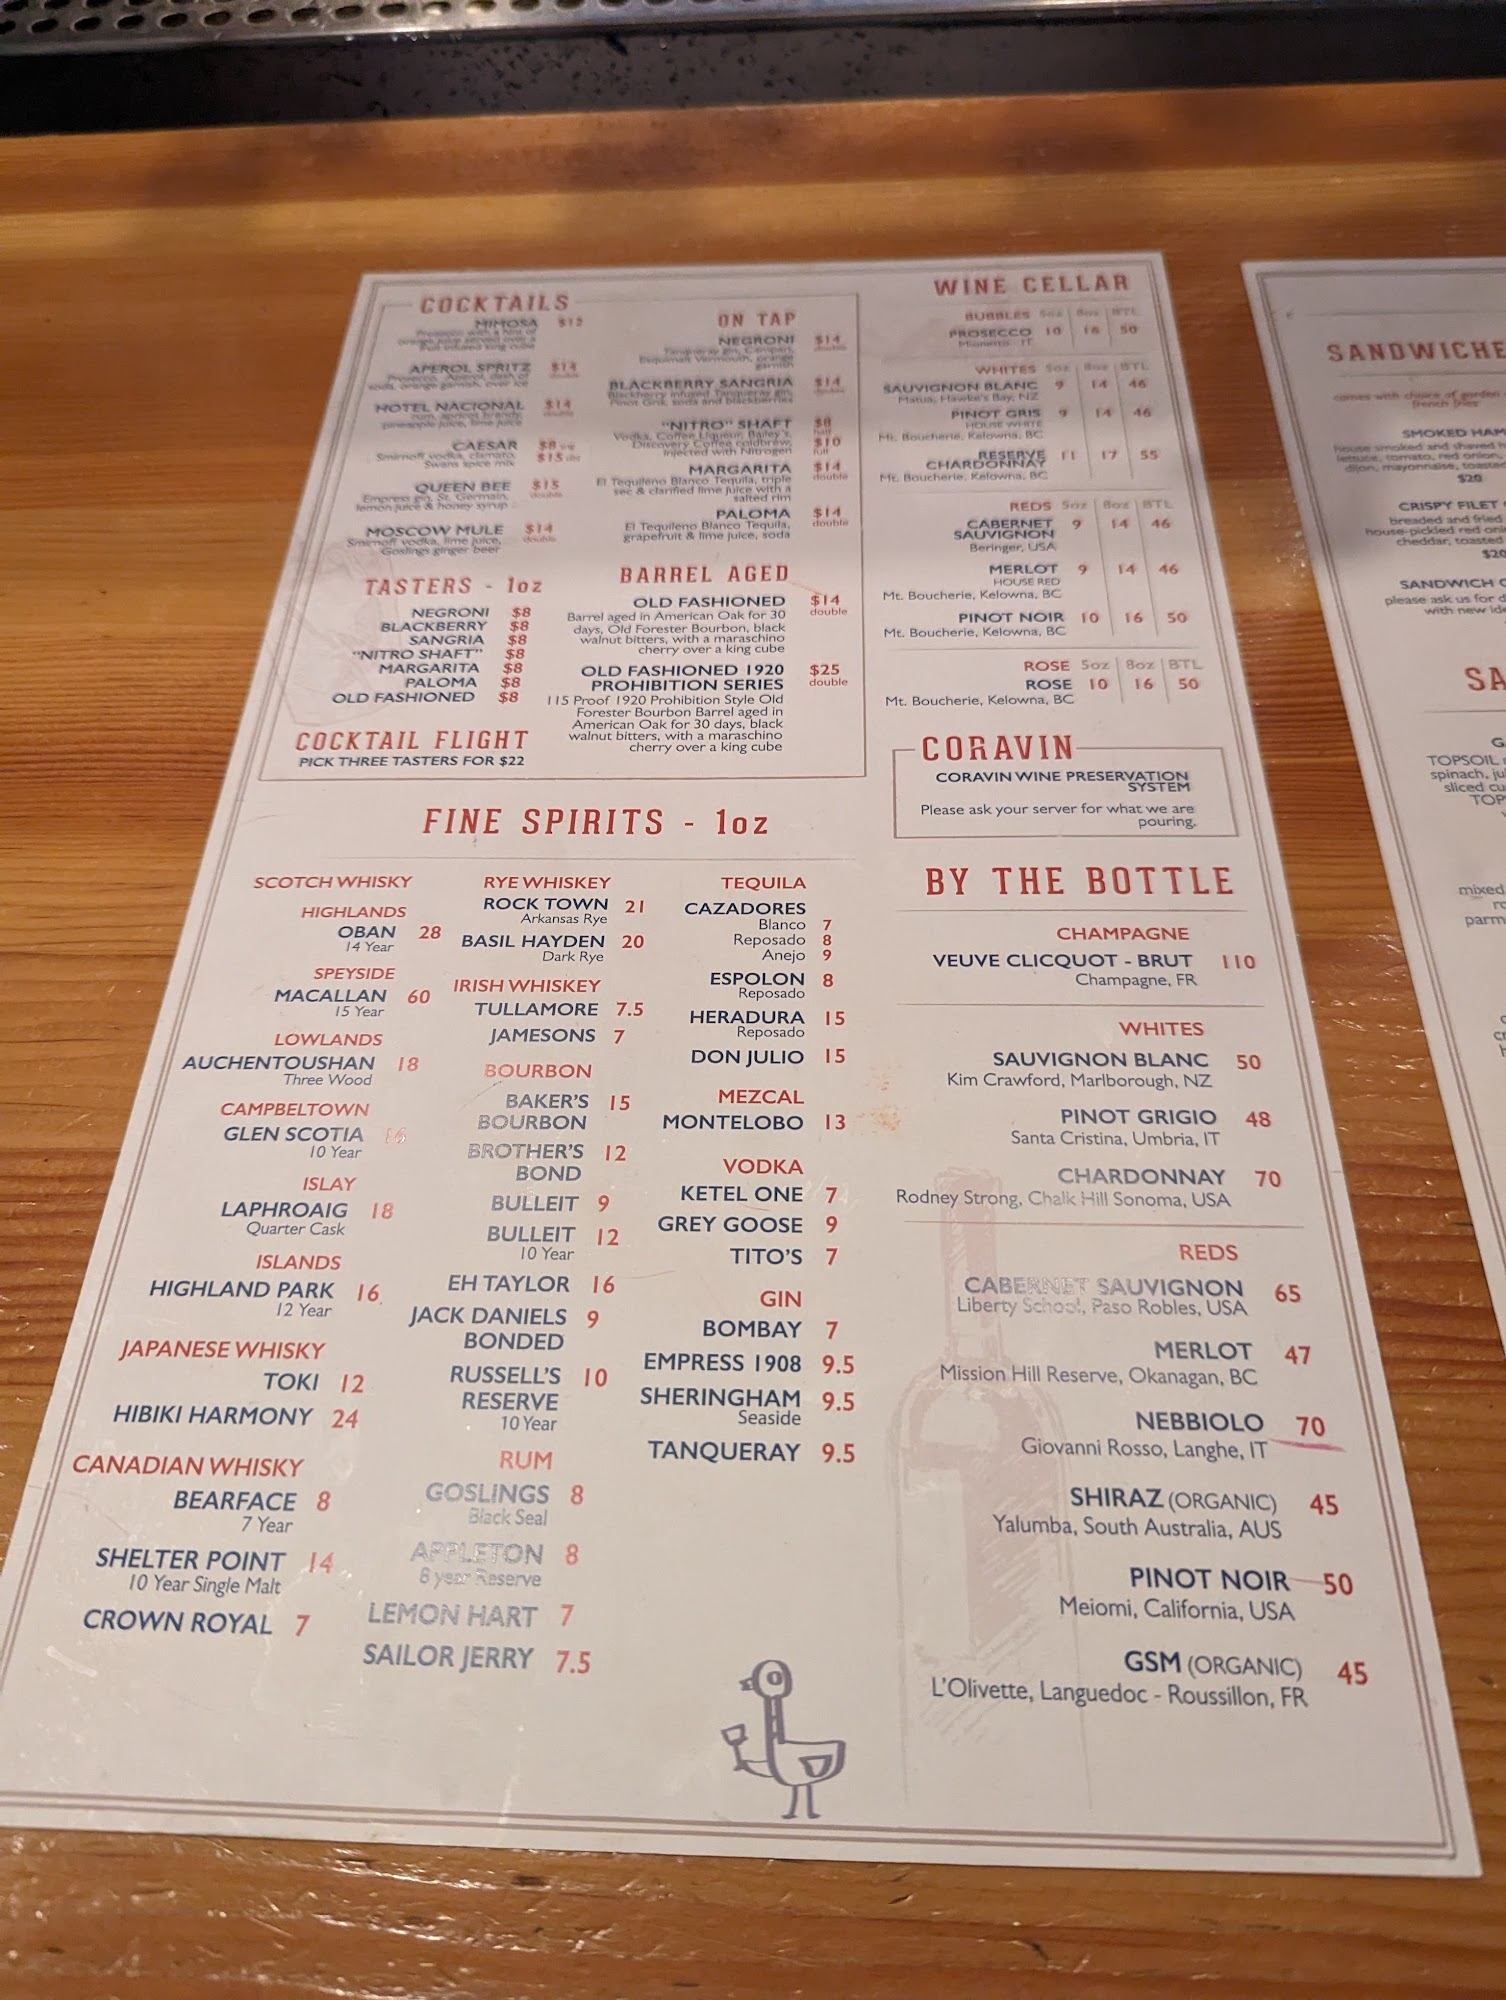 COCKTAILS
MIMOSA $12
Prosecco with a hint of
orange juice served over a
fruit infused king cube
APEROL SPRITZ $14
double
Prosecco, Aperol, dash of
soda, orange garnish, over ice
HOTEL NACIONAL $14
double
rum, apricot brandy,
pineapple juice, lime juice
CAESAR $8
Smirnoff vodka, clamato, $15
Swans spice mix
QUEEN BEE $15
double
Empress gin, St. Germain,
lemon juice & honey syrup
MOSCOW MULE $14
double
Smirnoff vodka, lime juice,
Goslings ginger beer
TASTERS - 1oz
NEGRONI $8
BLACKBERRY $8
SANGRIA $8
"NITRO SHAFT" $8
MARGARITA $8
PALOMA $8
OLD FASHIONED $8
COCKTAIL FLIGHT
PICK THREE TASTERS FOR $22
ON TAP
NEGRONI $14
double
Tanqueray gin, Campari,
Esquimalt Vermouth, orange
garnish
BLACKBERRY SANGRIA $14
double
Blackberry infused Tanqueray gin,
Pinot Gris, soda and blackberries
"NITRO" SHAFT $8
half
Vodka, Coffee Liqueur, Bailey's,
Discovery Coffee coldbrew, $10
Injected with Nitrogen full
MARGARITA $14
double
El Tequileno Blanco Tequila, triple
sec & clarified lime juice with a
salted rim
PALOMA $14
double
El Tequileno Blanco Tequila,
grapefruit & lime juice, soda
BARREL AGED
OLD FASHIONED $14
double
Barrel aged in American Oak for 30
days, Old Forester Bourbon, black
walnut bitters, with a maraschino
cherry over a king cube
OLD FASHIONED 1920 $25
PROHIBITION SERIES double
115 Proof 1920 Prohibition Style Old
Forester Bourbon Barrel aged in
American Oak for 30 days, black
walnut bitters, with a maraschino
cherry over a king cube
WINE CELLAR
BUBBLES 5oz 8oz BTL
PROSECCO 10 16 50
Mionetto, IT
WHITES 5oz 8oz BTL
SAUVIGNON BLANC 9 14 46
Matua, Hawke's Bay, NZ
PINOT GRIS 9 14 46
HOUSE WHITE
Mt. Boucherie, Kelowna, BC
RESERVE 11 17 55
CHARDONNAY
Mt. Boucherie, Kelowna, BC
REDS 5oz 8oz BTL
CABERNET 9 14 46
SAUVIGNON
Beringer, USA
MERLOT 9 14 46
HOUSE RED
Mt. Boucherie, Kelowna, BC
PINOT NOIR 10 16 50
Mt. Boucherie, Kelowna, BC
ROSE 5oz 8oz BTL
ROSE 10 16 50
Mt. Boucherie, Kelowna, BC
CORAVIN
CORAVIN WINE PRESERVATION
SYSTEM
Please ask your server for what we are
pouring.
FINE SPIRITS - 1oz
SCOTCH WHISKY
HIGHLANDS
OBAN 28
14 Year
SPEYSIDE
MACALLAN 60
15 Year
LOWLANDS
AUCHENTOUSHAN 18
Three Wood
CAMPBELTOWN
GLEN SCOTIA 16
10 Year
ISLAY
LAPHROAIG 18
Quarter Cask
ISLANDS
HIGHLAND PARK 16
12 Year
JAPANESE WHISKY
TOKI 12
HIBIKI HARMONY 24
CANADIAN WHISKY
BEARFACE 8
7 Year
SHELTER POINT 14
10 Year Single Malt
CROWN ROYAL 7
RYE WHISKEY
ROCK TOWN 21
Arkansas Rye
BASIL HAYDEN 20
Dark Rye
IRISH WHISKEY
TULLAMORE 7.5
JAMESONS 7
BOURBON
BAKER'S 15
BOURBON
BROTHER'S 12
BOND
BULLEIT 9
BULLEIT 12
10 Year
EH TAYLOR 16
JACK DANIELS 9
BONDED
RUSSELL'S 10
RESERVE
10 Year
RUM
GOSLINGS 8
Black Seal
APPLETON 8
8 year Reserve
LEMON HART 7
SAILOR JERRY 7.5
TEQUILA
CAZADORES
Blanco 7
Reposado 8
Anejo 9
ESPOLON 8
Reposado
HERADURA 15
Reposado
DON JULIO 15
MEZCAL
MONTELOBO 13
VODKA
KETEL ONE 7
GREY GOOSE 9
TITO'S 7
GIN
BOMBAY 7
EMPRESS 1908 9.5
SHERINGHAM 9.5
Seaside
TANQUERAY 9.5
BY THE BOTTLE
CHAMPAGNE
VEUVE CLICQUOT - BRUT 110
Champagne, FR
WHITES
SAUVIGNON BLANC 50
Kim Crawford, Marlborough, NZ
PINOT GRIGIO 48
Santa Cristina, Umbria, IT
CHARDONNAY 70
Rodney Strong, Chalk Hill Sonoma, USA
REDS
CABERNET SAUVIGNON 65
Liberty School, Paso Robles, USA
MERLOT 47
Mission Hill Reserve, Okanagan, BC
NEBBIOLO 70
Giovanni Rosso, Langhe, IT
SHIRAZ (ORGANIC) 45
Yalumba, South Australia, AUS
PINOT NOIR 50
Meiomi, California, USA
GSM (ORGANIC) 45
L'Olivette, Languedoc - Roussillon, FR
SANDWICHE
comes with choice of garden
french fries
SMOKED HAM
house smoked and shaved h
lettuce, tomato, red onion,
dijon, mayonnaise, toasted
$20
CRISPY FILET
breaded and fried
house-pickled red oni
cheddar, toasted
$20
SANDWICH
please ask us for d
with new ide
SA
TOPSOIL
spinach, ju
sliced cu
TOP
mixed
parm